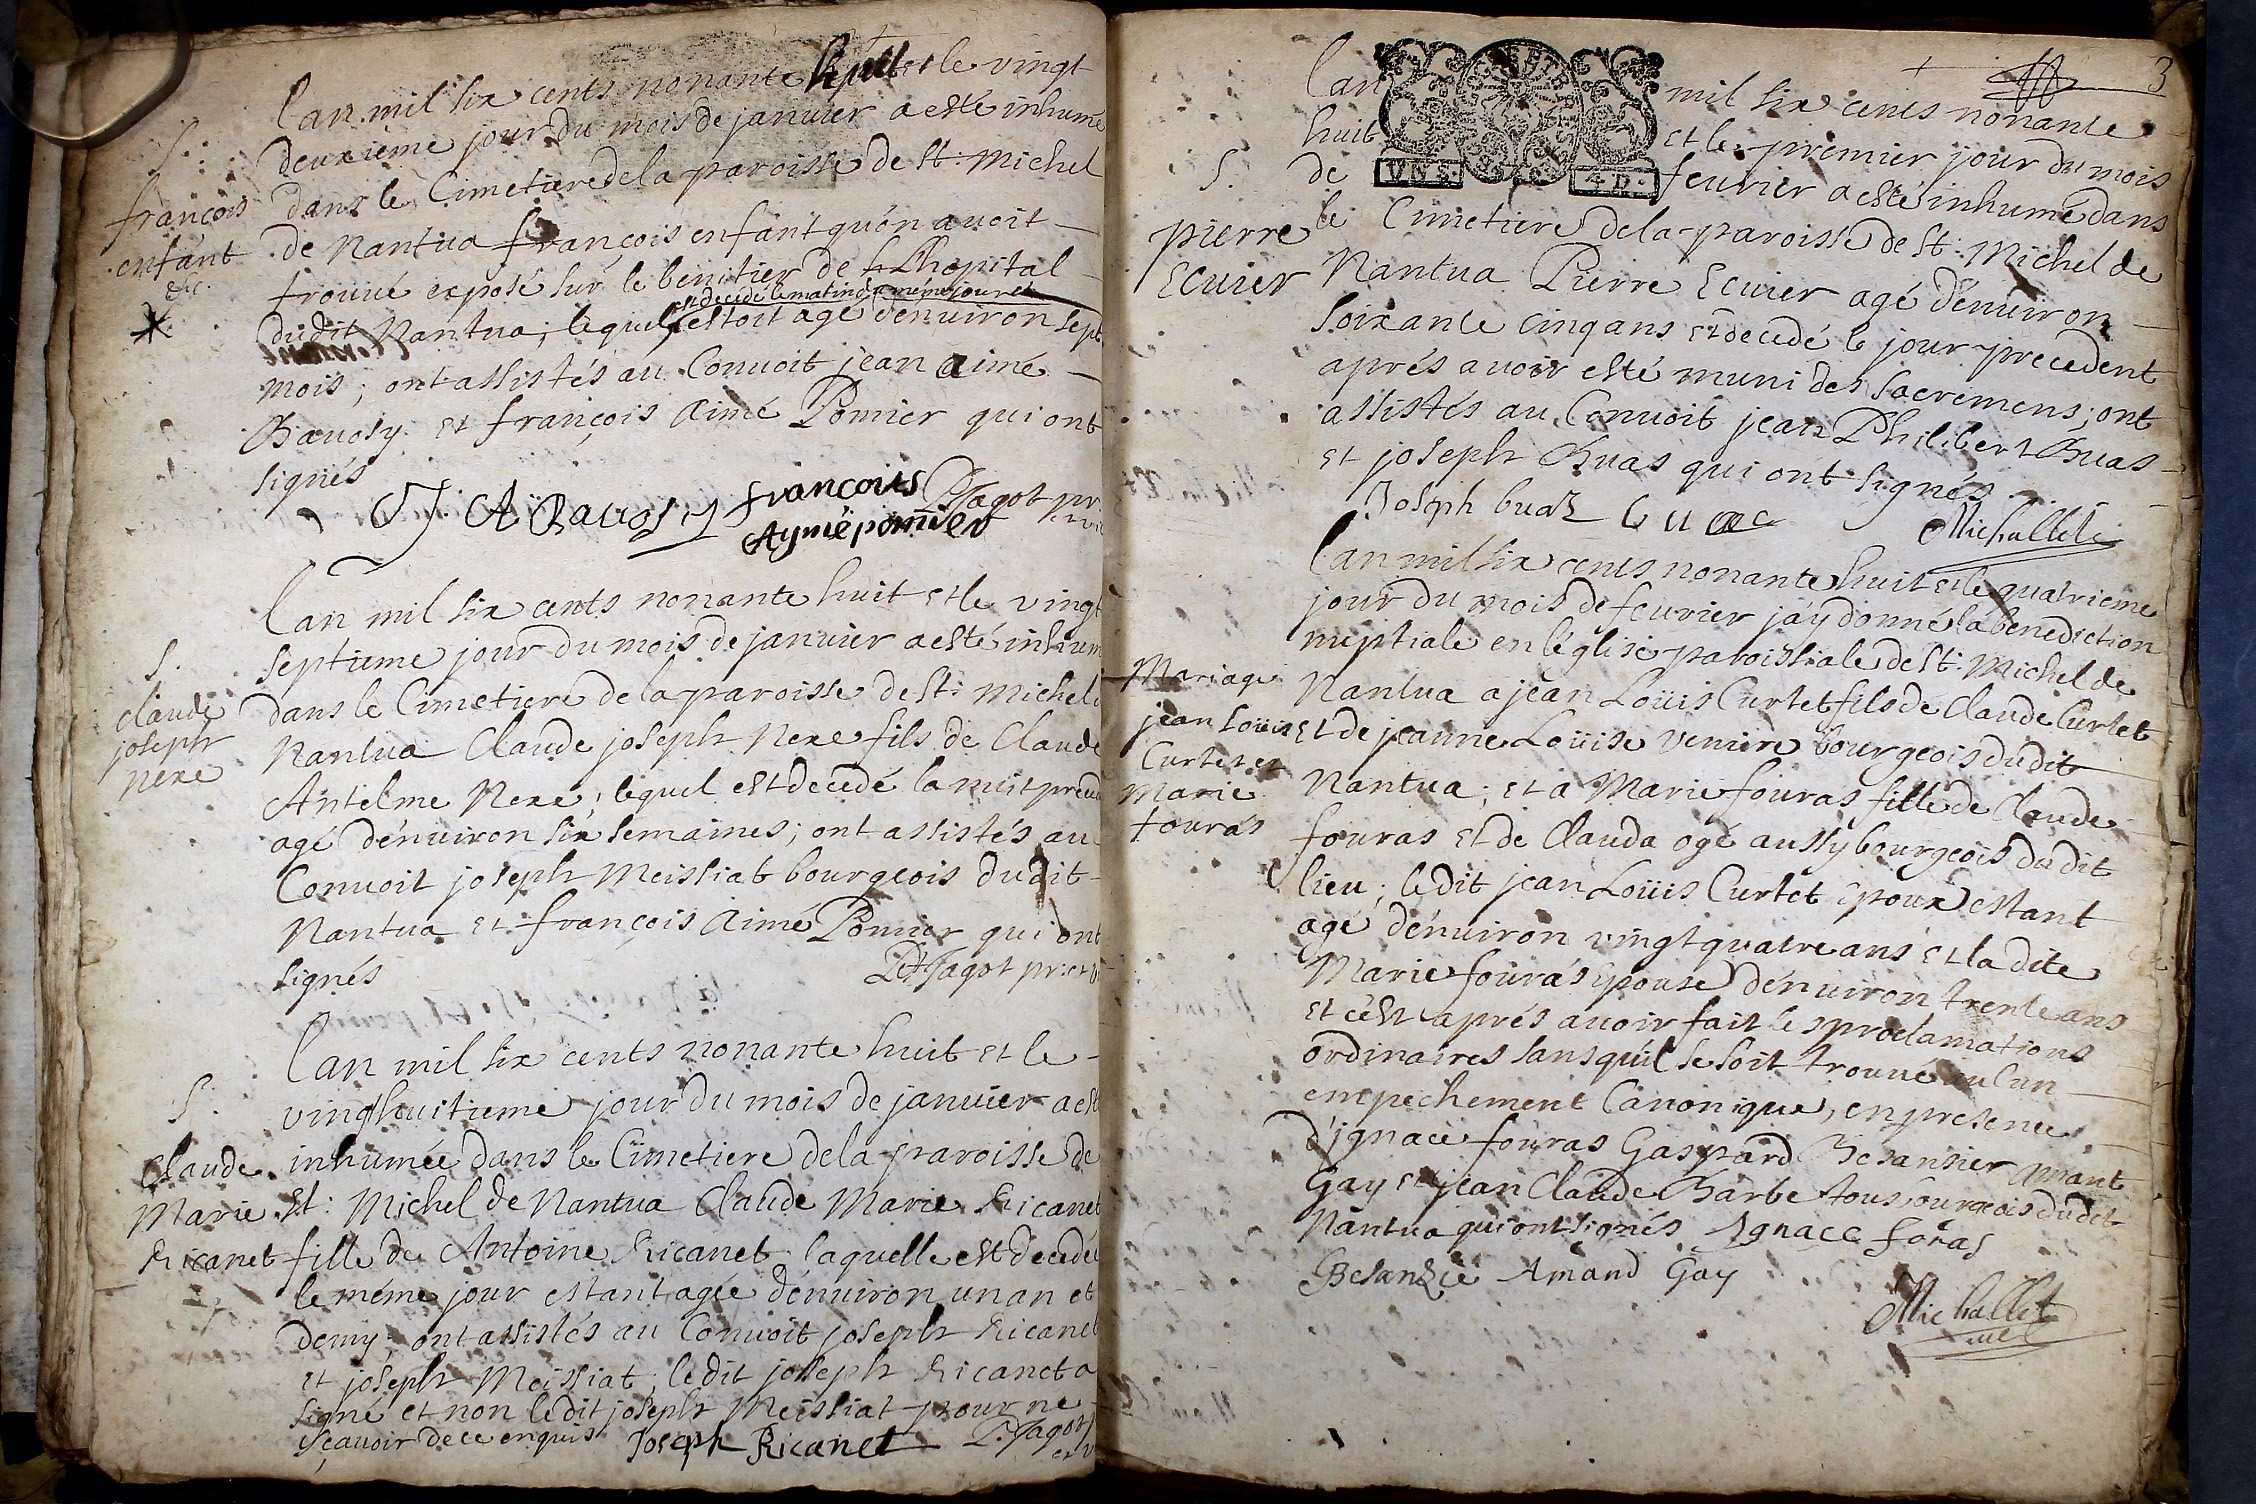 l'an mil six cents nonante huit et le vingt
deuxieme jour du mois de januier a esté inhumé
dans le Cimetiere de la paroisse de St: Michel
de Nantua françois enfant qu'on auoit
trouué exposé sur le benitier de Lhopital
est decedé le matin du méme jour et
dudit Nantua; lequel estoit agé d'enuiron sept
mois; ont assistés au Conuoit jean aimé
Bauosy et françois aimé Ponier qui ont
signés
S.
françois
enfant
&c.
J A Bauosy françois Aymé ponier P Jagot pr.
l'an mil six cents nonante huit et le vingt
septieme jour du mois de januier a esté inhum
dans le Cimetiere de la paroisse de St: Michel d
Nantua Claude joseph Nexe fils de Claude
Antelme Nexe; lequel est decedé la nuit preced
agé d'enuiron six semaines; ont assistés au
Conuoit joseph Meissiat bourgeois dudit
Nantua et françois aimé Ponier qui ont
signés
P Jagot pr: et v
S.
claude
joseph
nexe
l'an mil six cents nonante huit et le
vingthuitieme jour du mois de januier a est
inhumée dans le Cimetiere de la paroisse de
St: Michel de Nantua Claude Marie Ricanet
fille de Antoine Ricanet laquelle est decedée
le méme jour estant agée d'enuiron un an et
demy; ont assistés au Conuoit joseph Ricanet
et joseph Meissiat; ledit joseph Ricanet a
signé et non ledit joseph Meissiat pour ne
sçauoir de ce enquis Joseph Ricanet P. Jagot p
et v
S.
Claude
Marie
Ricanet
3
l'an mil six cents nonante
huit et le premier jour du mois
de feurier a esté inhumé dans
le Cimetiere de la paroisse de St: Michel de
Nantua Pierre Ecuier agé d'enuiron
soixante cinq ans et decedé le jour precedent
aprés auoir esté muni des sacremens; ont
assistés au Conuoit jean Philibert Buas
et joseph Buas qui ont signés
VN S. 4 D.
S.
pierre
Ecuier
Joseph buaz buac Michallet
l'an mil six cents nonante huit et le quatrieme
jour du mois de feurier j'ay donné la benediction
nuptiale en l'église paroissiale de St: Michel de
Nantua a jean Loüis Curtet fils de Claude Curtet
et de jeanne Loüise veniere bourgeois dudit
Nantua; et a Marie fouras fille de Claude
fouras et de Clauda ogé aussy bourgeois dudit
lieu; ledit jean Loüis Curtet époux estant
agé d'enuiron vingt quatre ans et la dite
Marie fouras épouse d'enuiron trente ans
et cést aprés auoir fait les proclamations
ordinaires sans qu'il se soit trouué aucun
empéchement Canonique, en presence
d'ignace fouras Gaspard Besansier amant
Gay et jean Claude Barbe tous bourgeois dudit
Nantua qui ont signés Ignace foras
Besanzie Amand Gay
Michallet
Mariage
jean Loüis
Curtet et
Marie
fouras